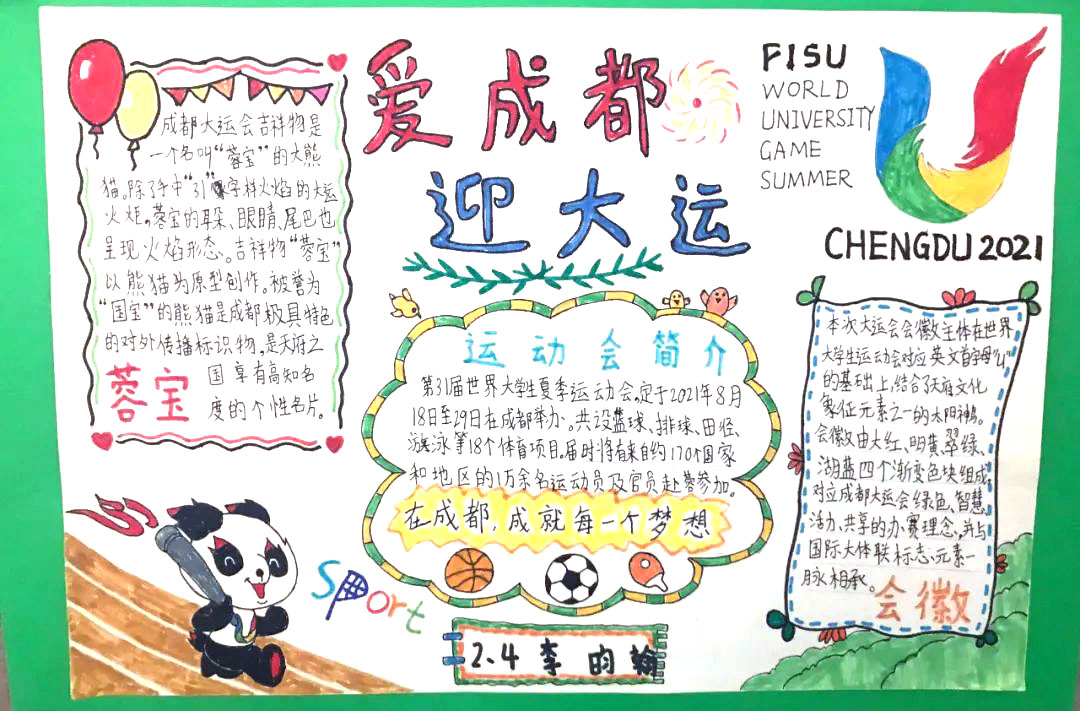 爱成都
迎大运
FISU
WORLD
UNIVERSITY
GAME
SUMMER
CHENGDU 2021
成都大运会吉祥物是
一个名叫“蓉宝”的大熊
猫。除了手中“31”字样火焰的大运
火炬。蓉宝的耳朵、眼睛、尾巴也
呈现火焰形态。吉祥物“蓉宝”
以熊猫为原型创作。被誉为
“国宝”的熊猫是成都极具特色
的对外传播标识物,是天府之
国享有高知名
度的个性名片。
蓉宝
运动会简介
第31届世界大学生夏季运动会,定于2021年8月
18日至29日在成都举办。共设篮球、排球、田径、
游泳等18个体育项目。届时将有来自约170个国家
和地区的1万余名运动员及官员赴蓉参加。
在成都,成就每一个梦想
本次大运会会徽主体在世界
大学生运动会对应英文首字母“U”
的基础上,结合了天府文化
象征元素之一的太阳神鸟。
会徽由大红、明黄、翠绿、
湖蓝四个渐变色块组成,
对应成都大运会绿色、智慧、
活力、共享的办赛理念,并与
国际大体联标志元素一
脉相承。
会徽
31
Sport
2.4 李昀翰